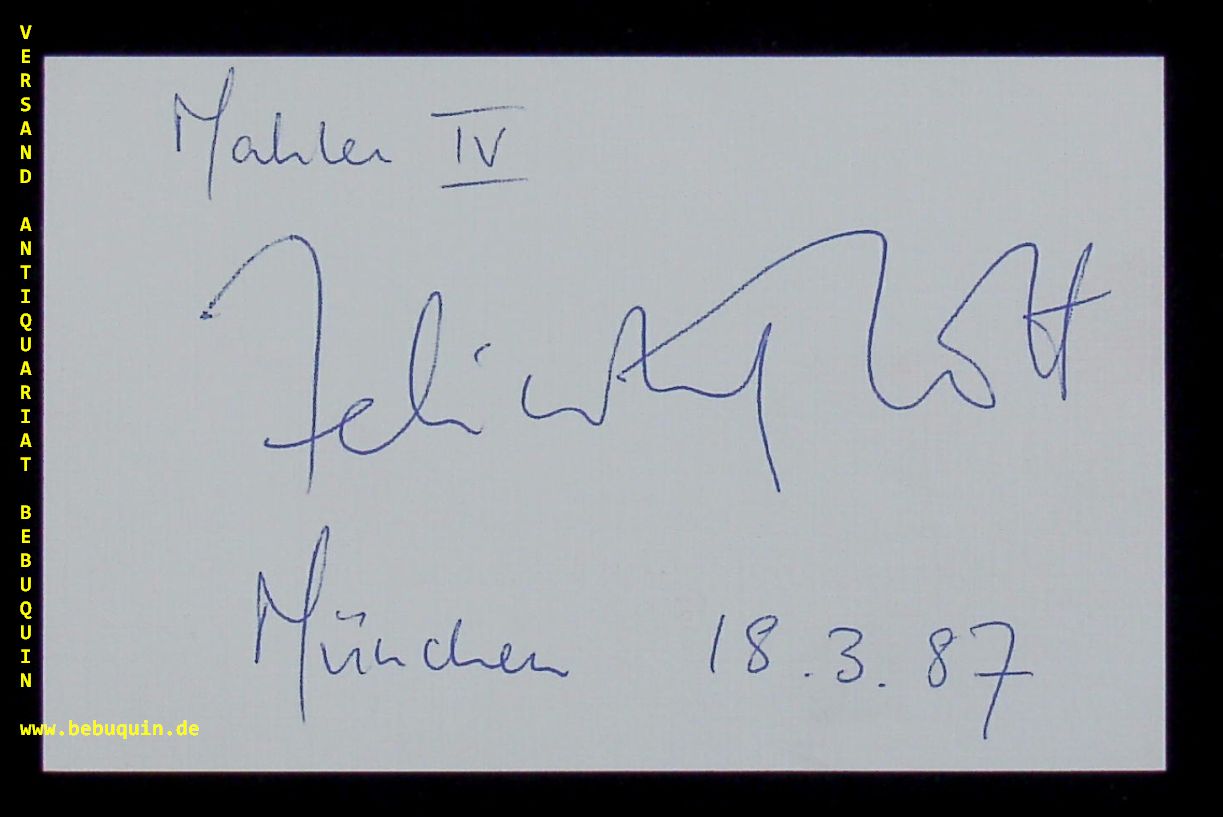 VERSAND ANTIQUARIAT BEBUQUIN
Mahler IV
Felicity Lott
München 18.3.87
www.bebuquin.de